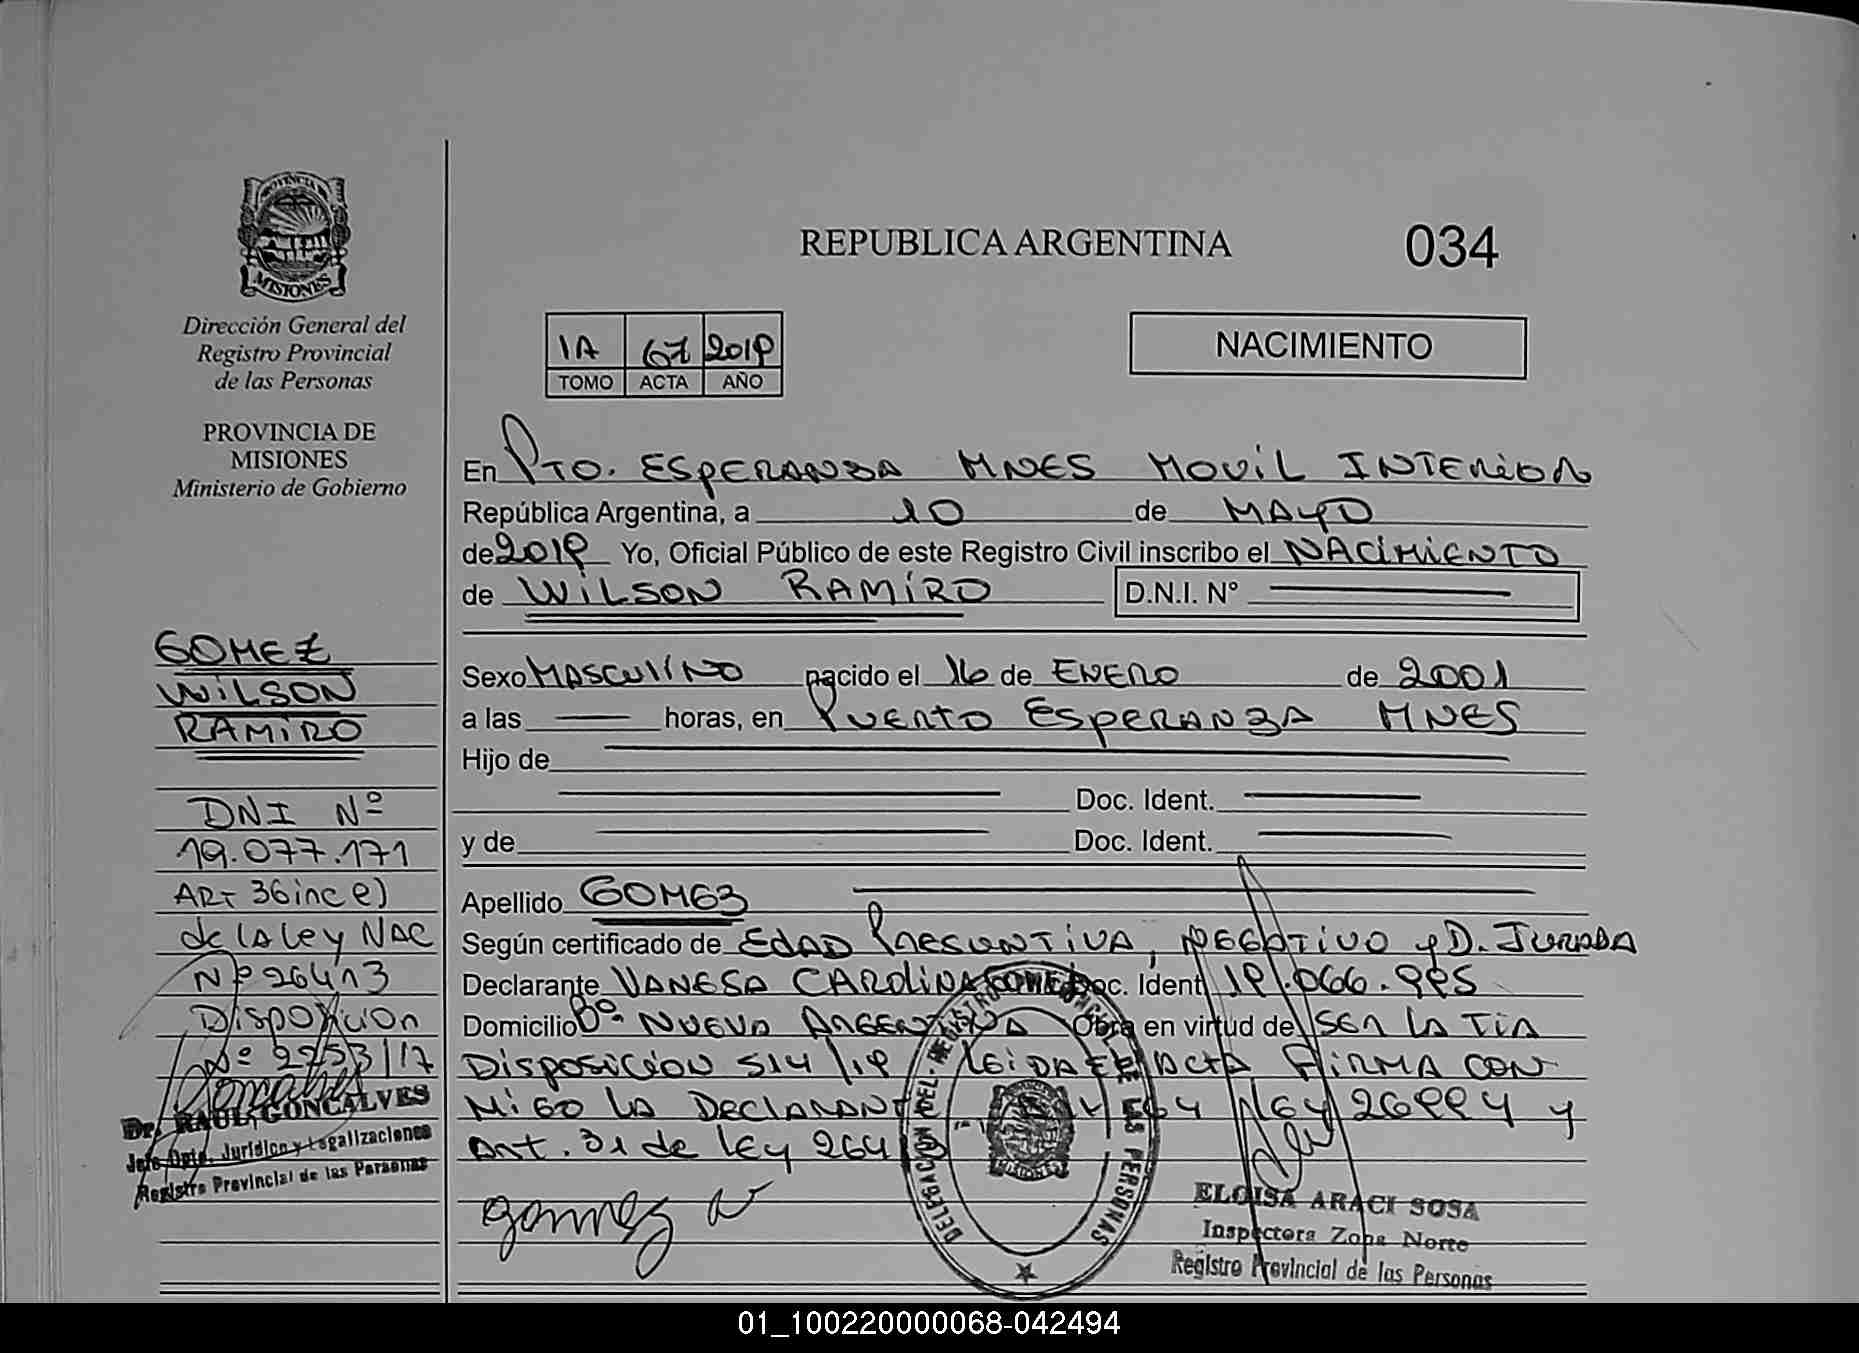 PROVINCIA
MISIONES
Dirección General del
Registro Provincial
de las Personas
PROVINCIA DE
MISIONES
Ministerio de Gobierno
REPUBLICA ARGENTINA
034
1A 67 2019
TOMO ACTA AÑO
NACIMIENTO
En Pto. ESPERANZA MNES MOVIL INTERIOR
República Argentina, a 10 de MAYO
de 2019 Yo, Oficial Público de este Registro Civil inscribo el NACIMIENTO
de WILSON RAMIRO D.N.I. N°
Sexo MASCULINO nacido el 16 de ENERO de 2001
a las horas, en PUERTO ESPERANZA MNES
Hijo de
Doc. Ident.
y de Doc. Ident.
Apellido GOMEZ
Según certificado de EDAD PRESUNTIVA, NEGATIVO y D. JURADA
Declarante VANESA CAROLINA GOMEZ Doc. Ident. 19.066.995
Domicilio Bº. NUEVA ARGENTINA Obra en virtud de SER LA TIA
DISPOSICION 514/19 LEIDA EL ACTA FIRMA CON
MIGO LA DECLARANTE LEY 26994 y
Art. 31 de LEY 26413
GOMEZ
WILSON
RAMIRO
DNI Nº
19.077.171
ART 36 inc e)
de LA Ley NAC
Nº 26413
Disposicion
Nº 2253/17
Goncalves
Dr. RAUL GONCALVES
Jefe Dpto. Jurídico y Legalizaciones
Registro Provincial de las Personas
gomez v
DELEGACION DEL REGISTRO PROVINCIAL DE LAS PERSONAS
MISIONES
ELOISA ARACI SOSA
Inspectora Zona Norte
Registro Provincial de las Personas
01_100220000068-042494